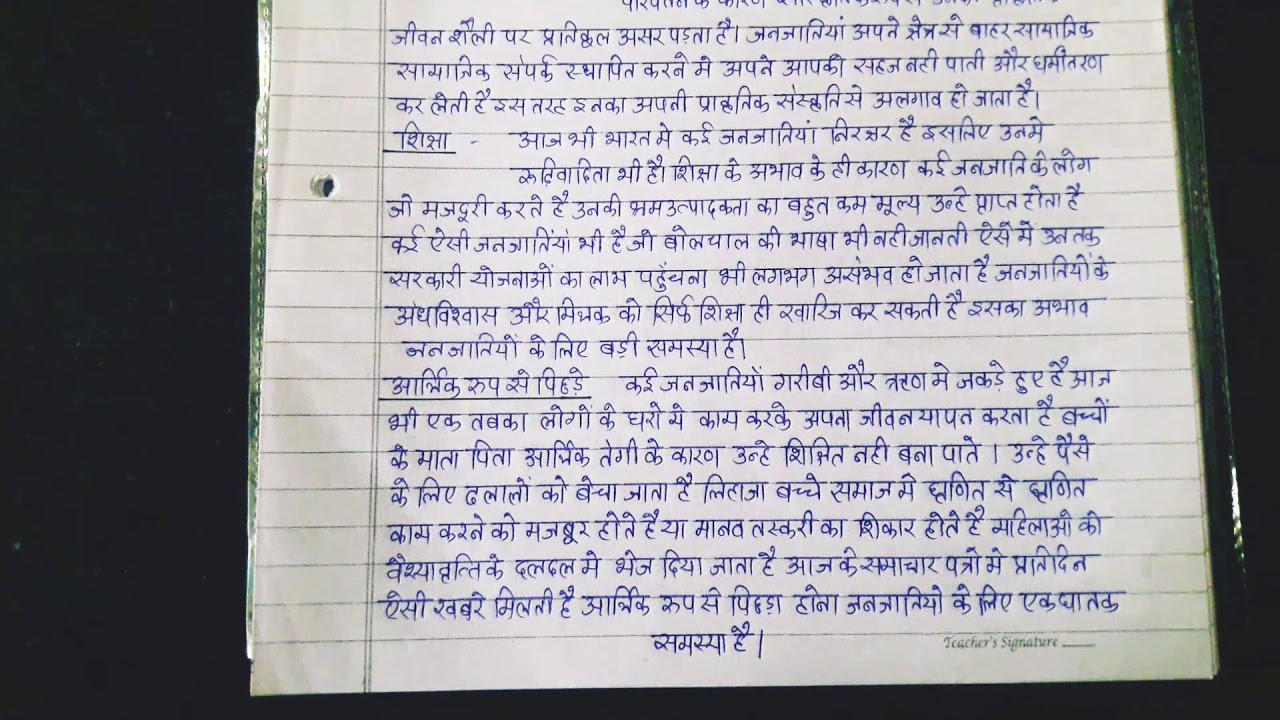 जीवन शैली पर प्रतिकूल असर पड़ता है। जनजातियां अपने क्षेत्र से बाहर सामाजिक
सामाजिक संपर्क स्थापित करने मे अपने आपको सहज नही पाती और धर्मांतरण
कर लेती है इस तरह इनका अपनी प्राकृतिक संस्कृति से अलगाव हो जाता है।
शिक्षा - आज भी भारत मे कई जनजातियां निरक्षर है इसलिए उनमे
रूढ़िवादिता भी है। शिक्षा के अभाव के ही कारण कई जनजाति के लोग
जो मजदूरी करते है उनकी श्रम उत्पादकता का बहुत कम मूल्य उन्हे प्राप्त होता है
कई ऐसी जनजातियां भी है जो बोलचाल की भाषा भी नही जानती ऐसे मे उन तक
सरकारी योजनाओं का लाभ पहुँचना भी लगभग असंभव हो जाता है जनजातियों के
अंधविश्वास और मिथक को सिर्फ शिक्षा ही खारिज कर सकती है इसका अभाव
जनजातियों के लिए बड़ी समस्या है।
आर्थिक रुप से पिछड़े कई जनजातियों गरीबी और ऋण मे जकड़े हुए है आज
भी एक तबका लोगों के घरो मे काम करके अपना जीवन यापन करता है बच्चों
के माता पिता आर्थिक तंगी के कारण उन्हे शिक्षित नही बना पाते । उन्हे पैसे
के लिए दलालों को बेचा जाता है लिहाजा बच्चे समाज मे घृणित से घृणित
काम करने को मजबूर होते है या मानव तस्करी का शिकार होते है महिलाओ को
वैश्यावृत्ति के दलदल मे भेज दिया जाता है आज के समाचार पत्रो मे प्रतिदिन
ऐसी खबरे मिलती है आर्थिक रुप से पिछड़ा होना जनजातियो के लिए एक घातक
समस्या है।
Teacher's Signature